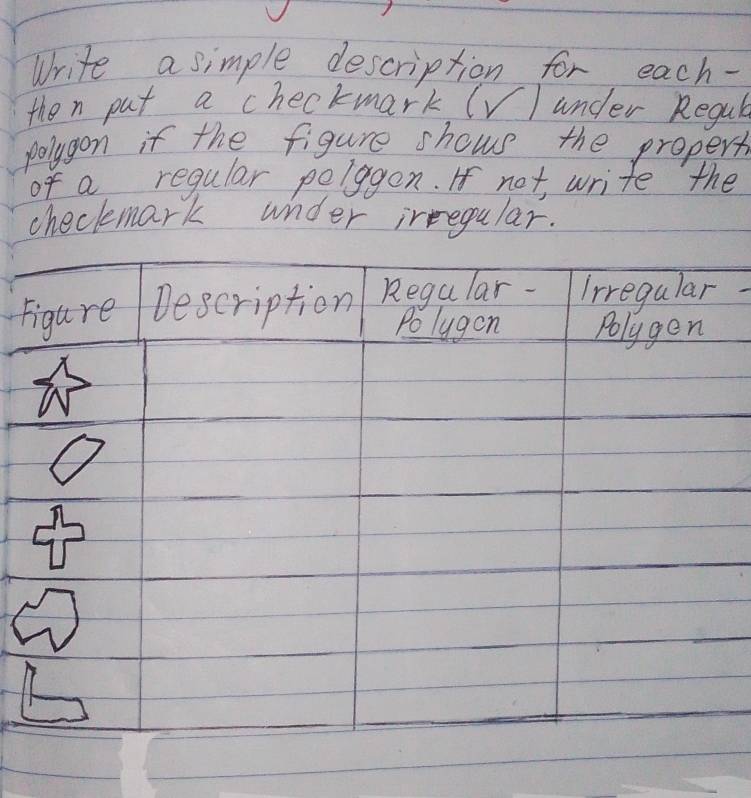 Write a simple description for each-
then put a checkmark (√) under Regul
polygon if the figure shows the propert
of a regular polggon. If not, write the
checkmark under irregular.
Figure Description Regular - Irregular -
Polygon Polygon